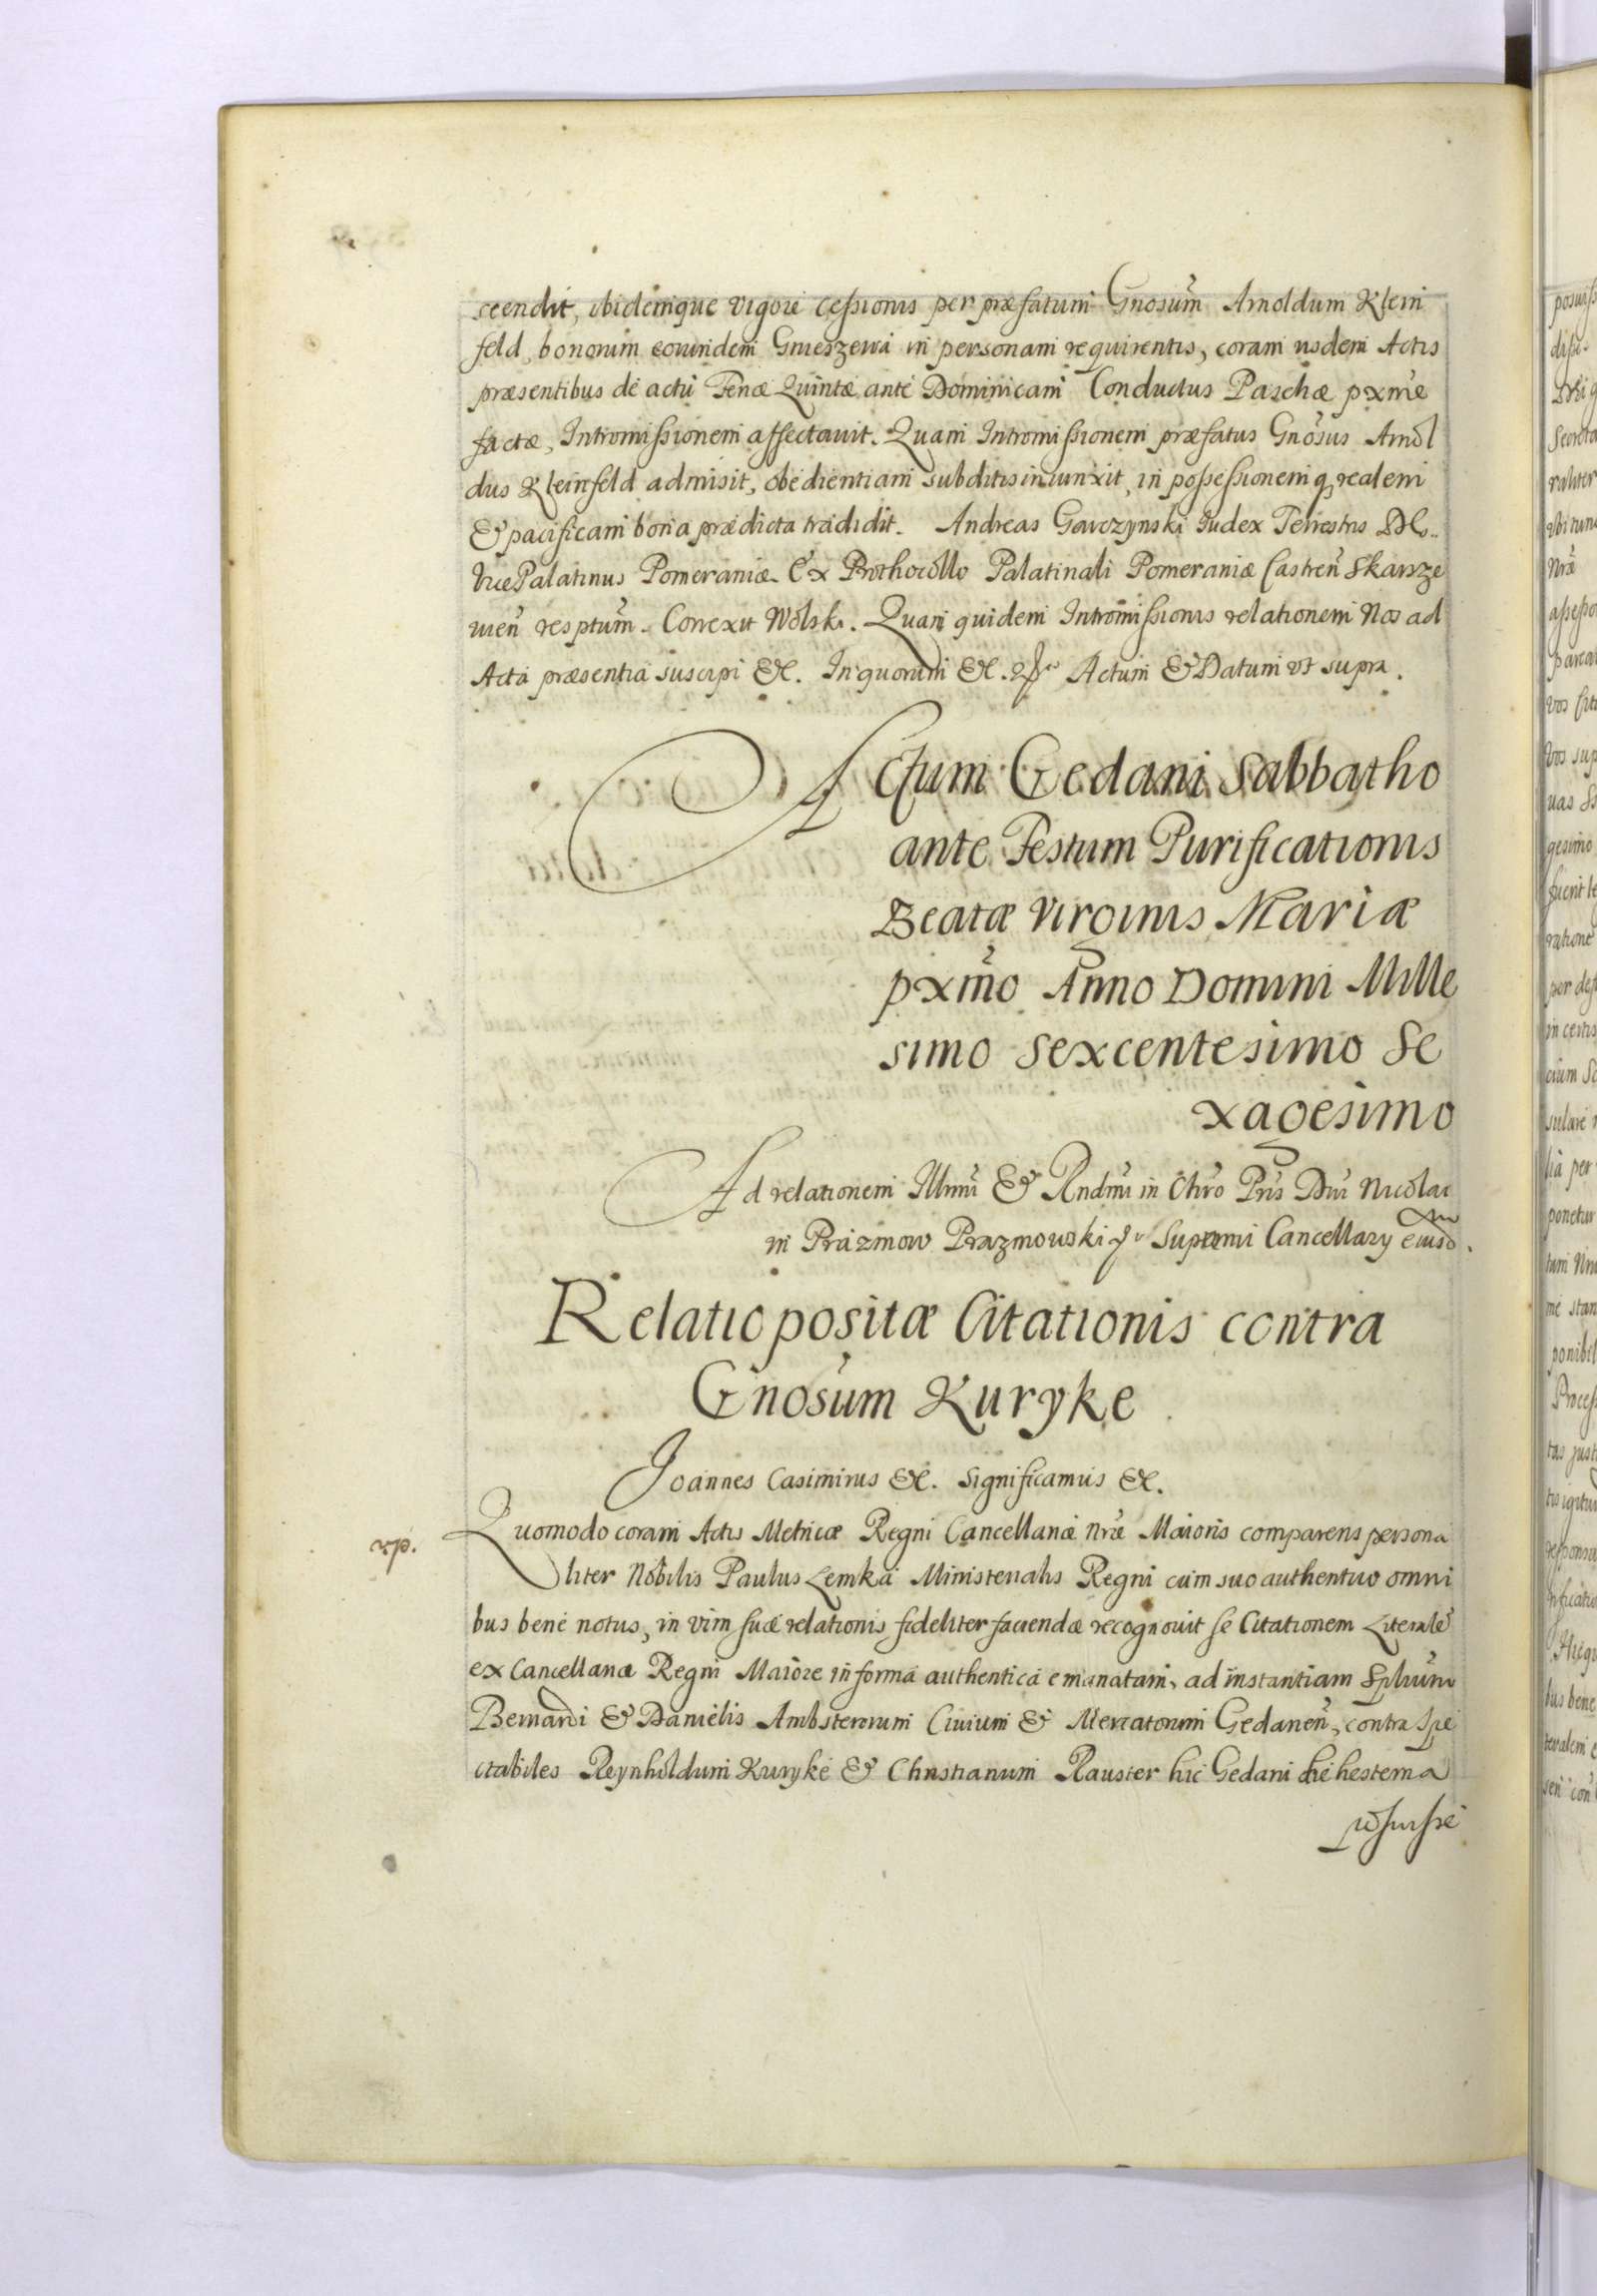 scendit, ibidemque vigore cessionis per præfatum Gnosum Arnoldum Klein
feld, bonorum eorundem Gnieszewa in personam requirentis, coram iisdem Actis
præsentibus de actu Feriæ Quintæ ante Dominicam Conductus Paschæ pxme
factæ, Intromissionem affectavit. Quam Intromissionem præfatus Gnosus Arnol
dus Kleinfeld admisit, obedientiam subditis iniunxit, in possessionemq realem
& pacificam bona prædicta tradidit. Andreas Gowczynski Iudex Terrestris
Vice Palatinus Pomeraniæ. Ex Prothocollo Palatinali Pomeraniæ Castren Skarsze
vien resptum. Correxit Wolski. Quam quidem Intromissionis relationem Nos ad
Acta præsentia suscepi &c. In quorum &c. Actum & Datum vt supra.
Actum Gedani Sabbatho
ante Festum Purificationis
Beatæ Virginis Mariæ
pxmo Anno Domini Mille
simo Sexcentesimo Se
xagesimo
Ad relationem Illmi & Rndmi in Chro Pris Dni Nicolai
in Prazmow Prazmowski Supremi Cancellary eiusd.
Relatio positæ Citationis contra
Gnosum Kuryke
Joannes Casimirus &c. Significamus &c.
Quomodo coram Actis Metricæ Regni Cancellariæ Nræ Maioris comparens persona
xp.
liter Nobilis Paulus Lemka Ministerialis Regni cum suo authentico omni
bus bene notus, in vim suæ relationis fideliter faciendæ recognovit se Citationem Literale
ex Cancellaria Regni Maiore in forma authentica emanatam, ad instantiam Splium
Bernardi & Danielis Ambsterorum Civium & Mercatorum Gedanen, contra Spe
ctabiles Reynholdum Kuryke & Christianum Rauster hic Gedani die hesterna
posuisse